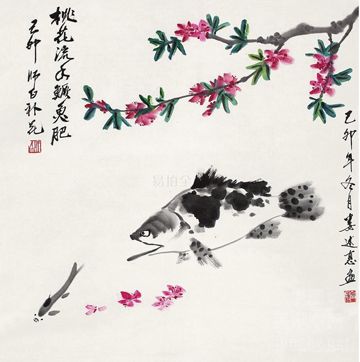 桃花流水鳜鱼肥
己卯 师白补花
己卯年冬月娄述惠画
易拍全球